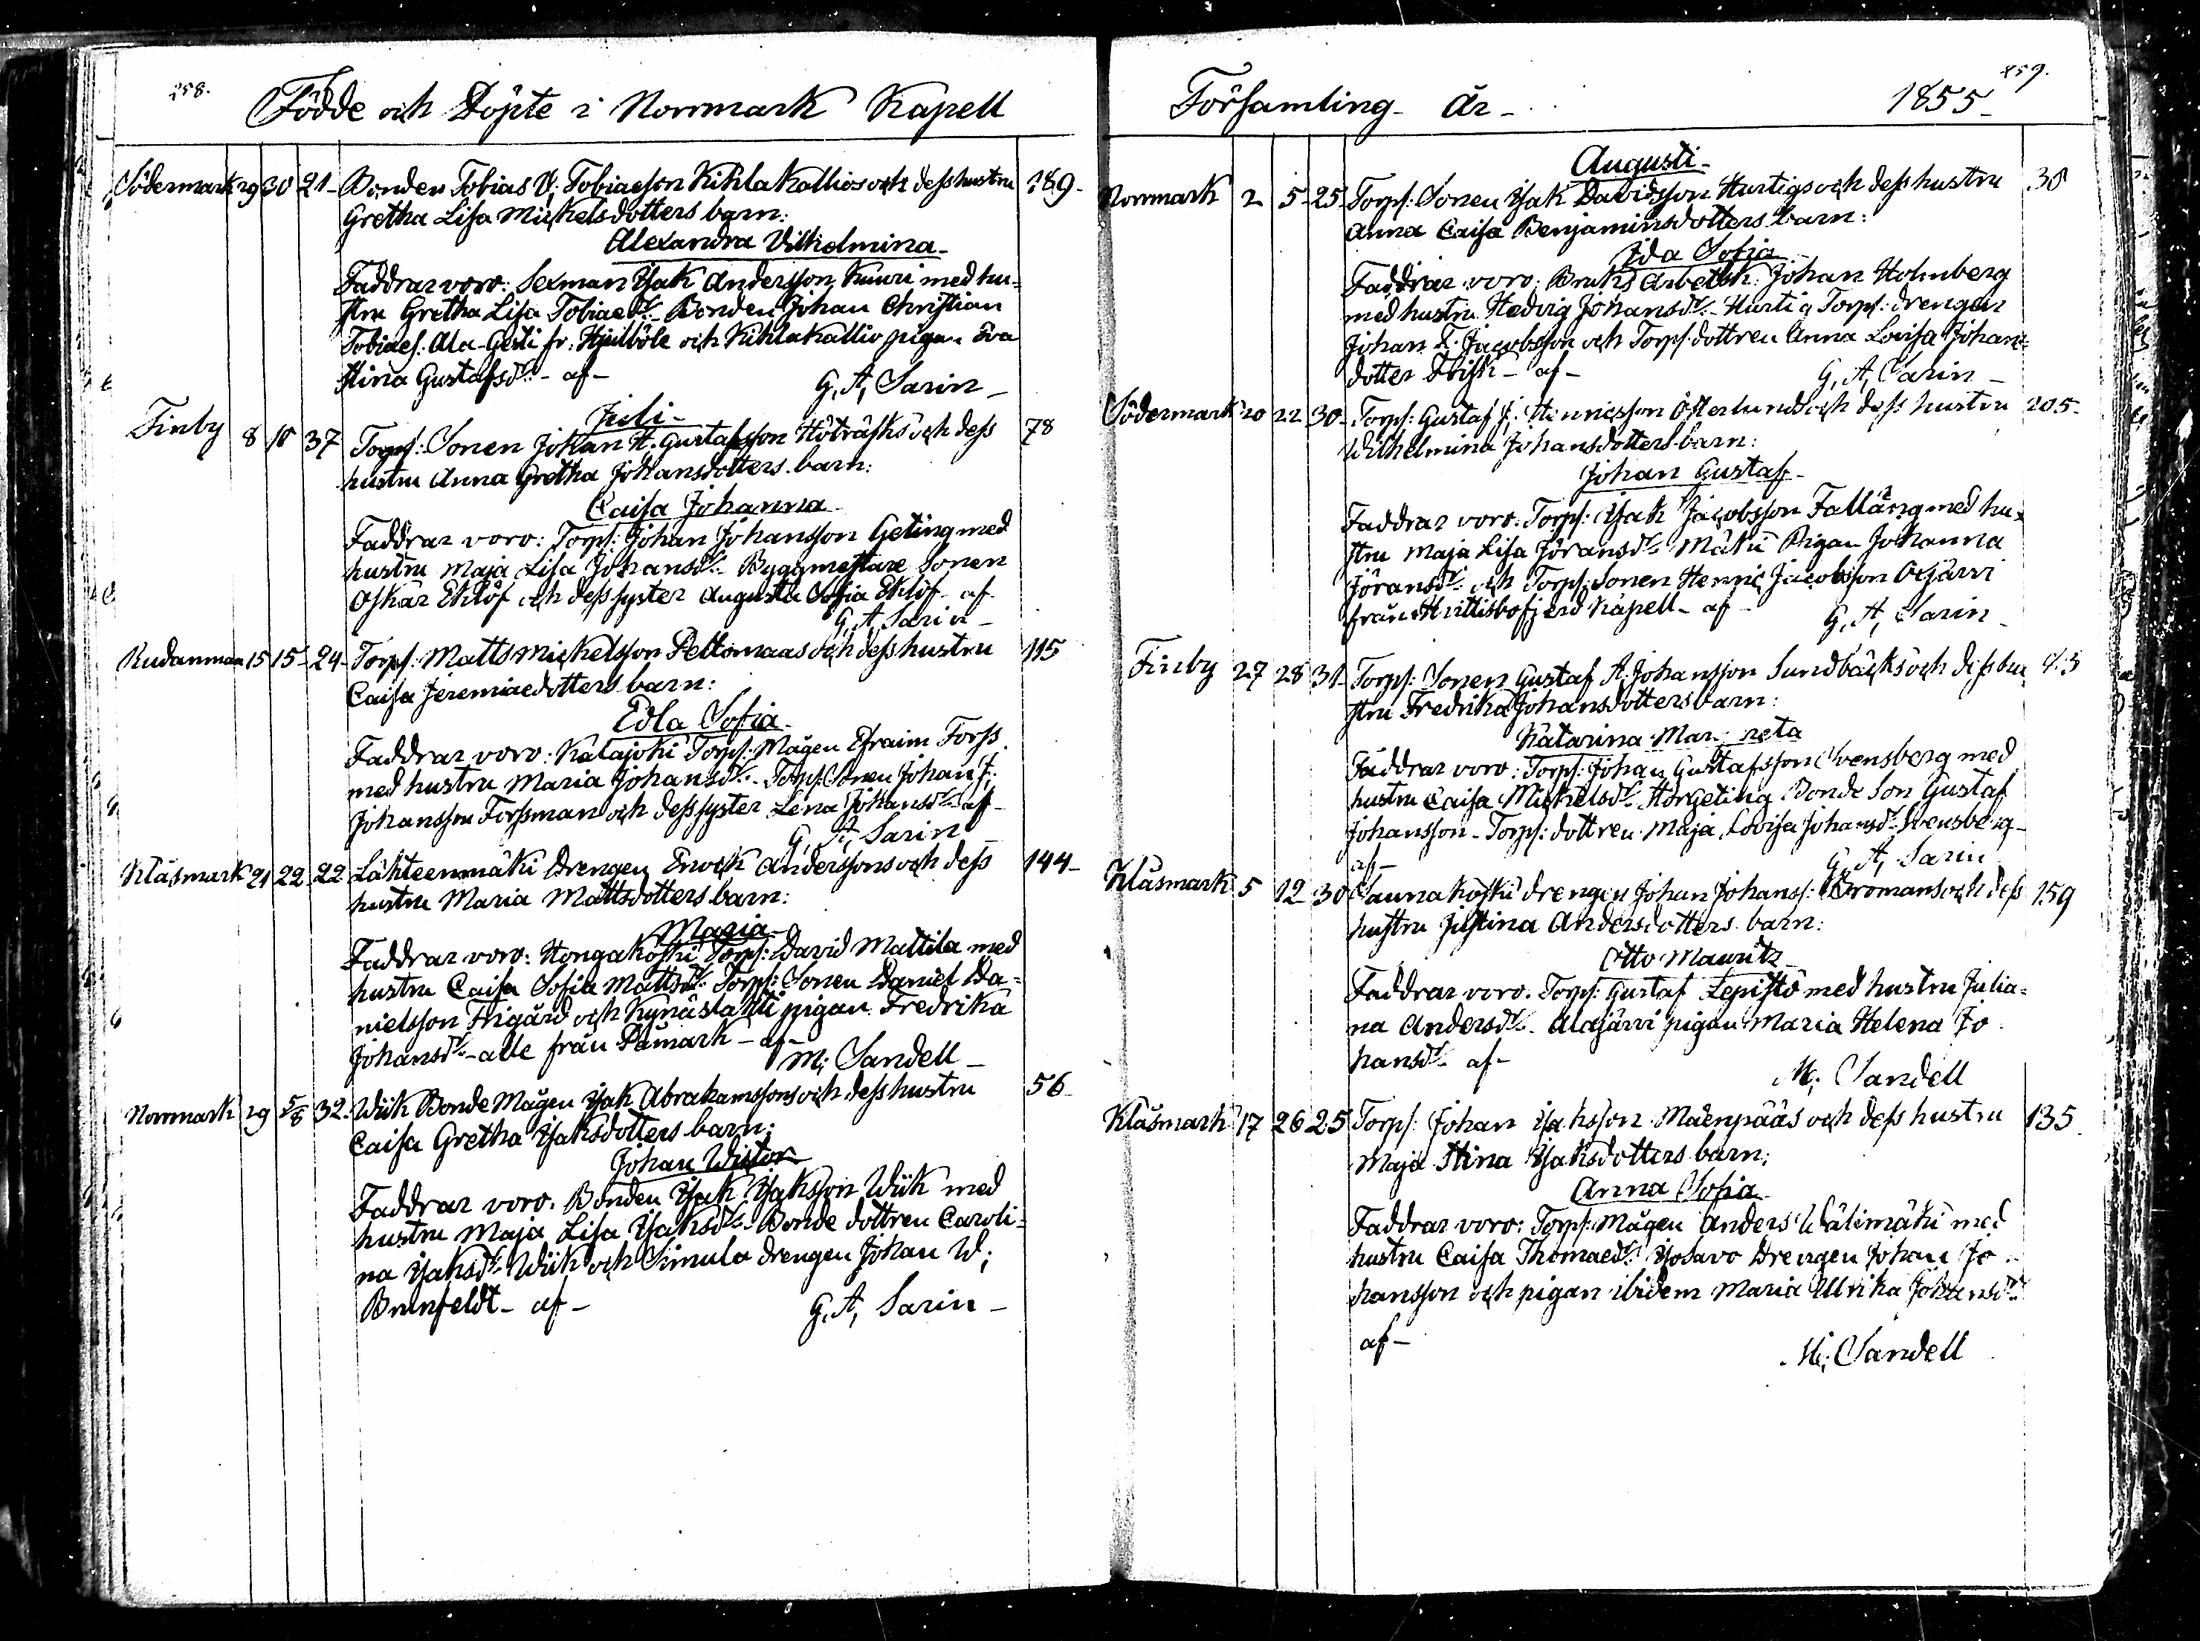 258.
Födde och Döpte i Norrmark Kapell
Södermark 29 30 21 Bonden Tobias V. Tobiaesson Kihlakallios och dess hustru 189
Gretha Lisa Mickelsdotters barn:
Alexandra Vilhelmina
Faddrar voro: Sexman Isak Andersson Kuuri med hu-
stru Gretha Lisa Tobiaedr. Bonden Johan Christian
Tobiaes. Ala-Gesti fr. Hjulböle och Kihlakallio pigan Eva
Stina Gustafsdr. - af -
G, A, Sarin
Juli
Finby 8 10 37 Torps: Sonen Johan H. Gustafsson Höträsks och dess 78
hustru Anna Gretha Johansdotters barn:
Caisa Johanna
Faddrar voro: Torp: Johan Johansson Geting med
hustru Maja Lisa Johansdr. Byggmestare Sonen
Oskar Eklöf och dess syster Augusta Sofia Eklöf af
G, A, Sarin
Rudanmaa 15 15 24 Torp: Matts Mickelsson Peltomaas och dess hustru 115
Caisa Jeremiaedotters barn:
Edla Sofia
Faddrar voro: Katajoki Torp: Mågen Efraim Forss
med hustru Maria Johansdr. Torp: Sonen Johan J;
Johansson Forssman och dess syster Lena Johansdr. af
G, A, Sarin
Klåsmark 21 22 22 Lähteenmäki Drengen Enock Anderssons och dess 144
hustru Maria Mattsdotters barn:
Maria
Faddrar voro: Hongakoski Torp: David Mattila med
hustru Caisa Sofia Mattsdr. Torp: Sonen Daniel Da-
nielsson Frigård och Kynäslahti pigan Fredrika
Johansdr. alle från Påmark - af -
M; Sandell
Norrmark 29 5/8 32 Wiik Bonde Mågen Isak Abrahamssons och dess hustru 56
Caisa Gretha Isaksdotters barn;
Johan Wictor
Faddrar voro. Bonden Isak Isaksson Wiik med
hustru Maja Lisa Isaksdr. Bonde dottren Caroli-
na Isaksdr. Wiik och Simula drengen Johan W;
Brunfeldt - af -
G, A, Sarin
259.
Församling År 1855
Augusti
Norrmark 2 5 25 Torp: Sonen Isak Davidsson Hurtigs och dess hustru 38
Anna Caisa Benjaminsdotters barn:
Ida Sofia
Faddrar voro: Bruks Arbetsk: Johan Holmberg
med hustru Hedvig Johansdr. Hurtig Torp: drengen
Johan F. Jacobsson och Torp: dottren Anna Lovisa Johans-
dotter Frisk - af -
G, A, Sarin
Södermark 20 22 30 Torp: Gustaf J; Henricsson Österlunds och dess hustru 205
Wilhelmina Johansdotters barn:
Johan Gustaf
Faddrar voro. Torp: Isak Jacobsson Fallång med hu-
stru Maja Lisa Jöransdr. Mäki Pigan Johanna
Jöransdr. och Torp: Sonen Henric Jacobsson Oxjärvi
från Hvittisbofjerd Kapell - af -
G, A, Sarin
Finby 27 28 31 Torp: Sonen Gustaf A. Johansson Sundbäcks och dess hu
stru Fredrika Johansdotters barn:
Katarina
Faddrar voro: Torp: Johan Gustafsson Svensberg med
hustru Caisa Mickelsdr. Storgeting Bonde Son Gustaf
Johansson - Torp: dottren Maja Lovisa Johansdr. Svensberg
af -
G, A, Sarin
Klåsmark 5 12 30 Saunakoski drengen Johan Johanss: Bromans och dess 159
hustru Justina Andersdotters barn:
Otto Mauritz
Faddrar voro. Torp: Gustaf Lepistö med hustru Julia-
na Andersdr. Alajärvi pigan Maria Helena Jo
hansdr. af -
M; Sandell
Klåsmark 17 26 25 Torp: Johan Isaksson Mäenpääs och dess hustru 135
Maja Stina Isaksdotters barn;
Anna Sofia
Faddrar voro: Torp: Mågen Anders Wälimäki med
hustru Caisa Thomaedr. Isosavo Drengen Johan Jo
hansson och pigan ibidem Maria Ulrika Johansdr.
af -
M; Sandell